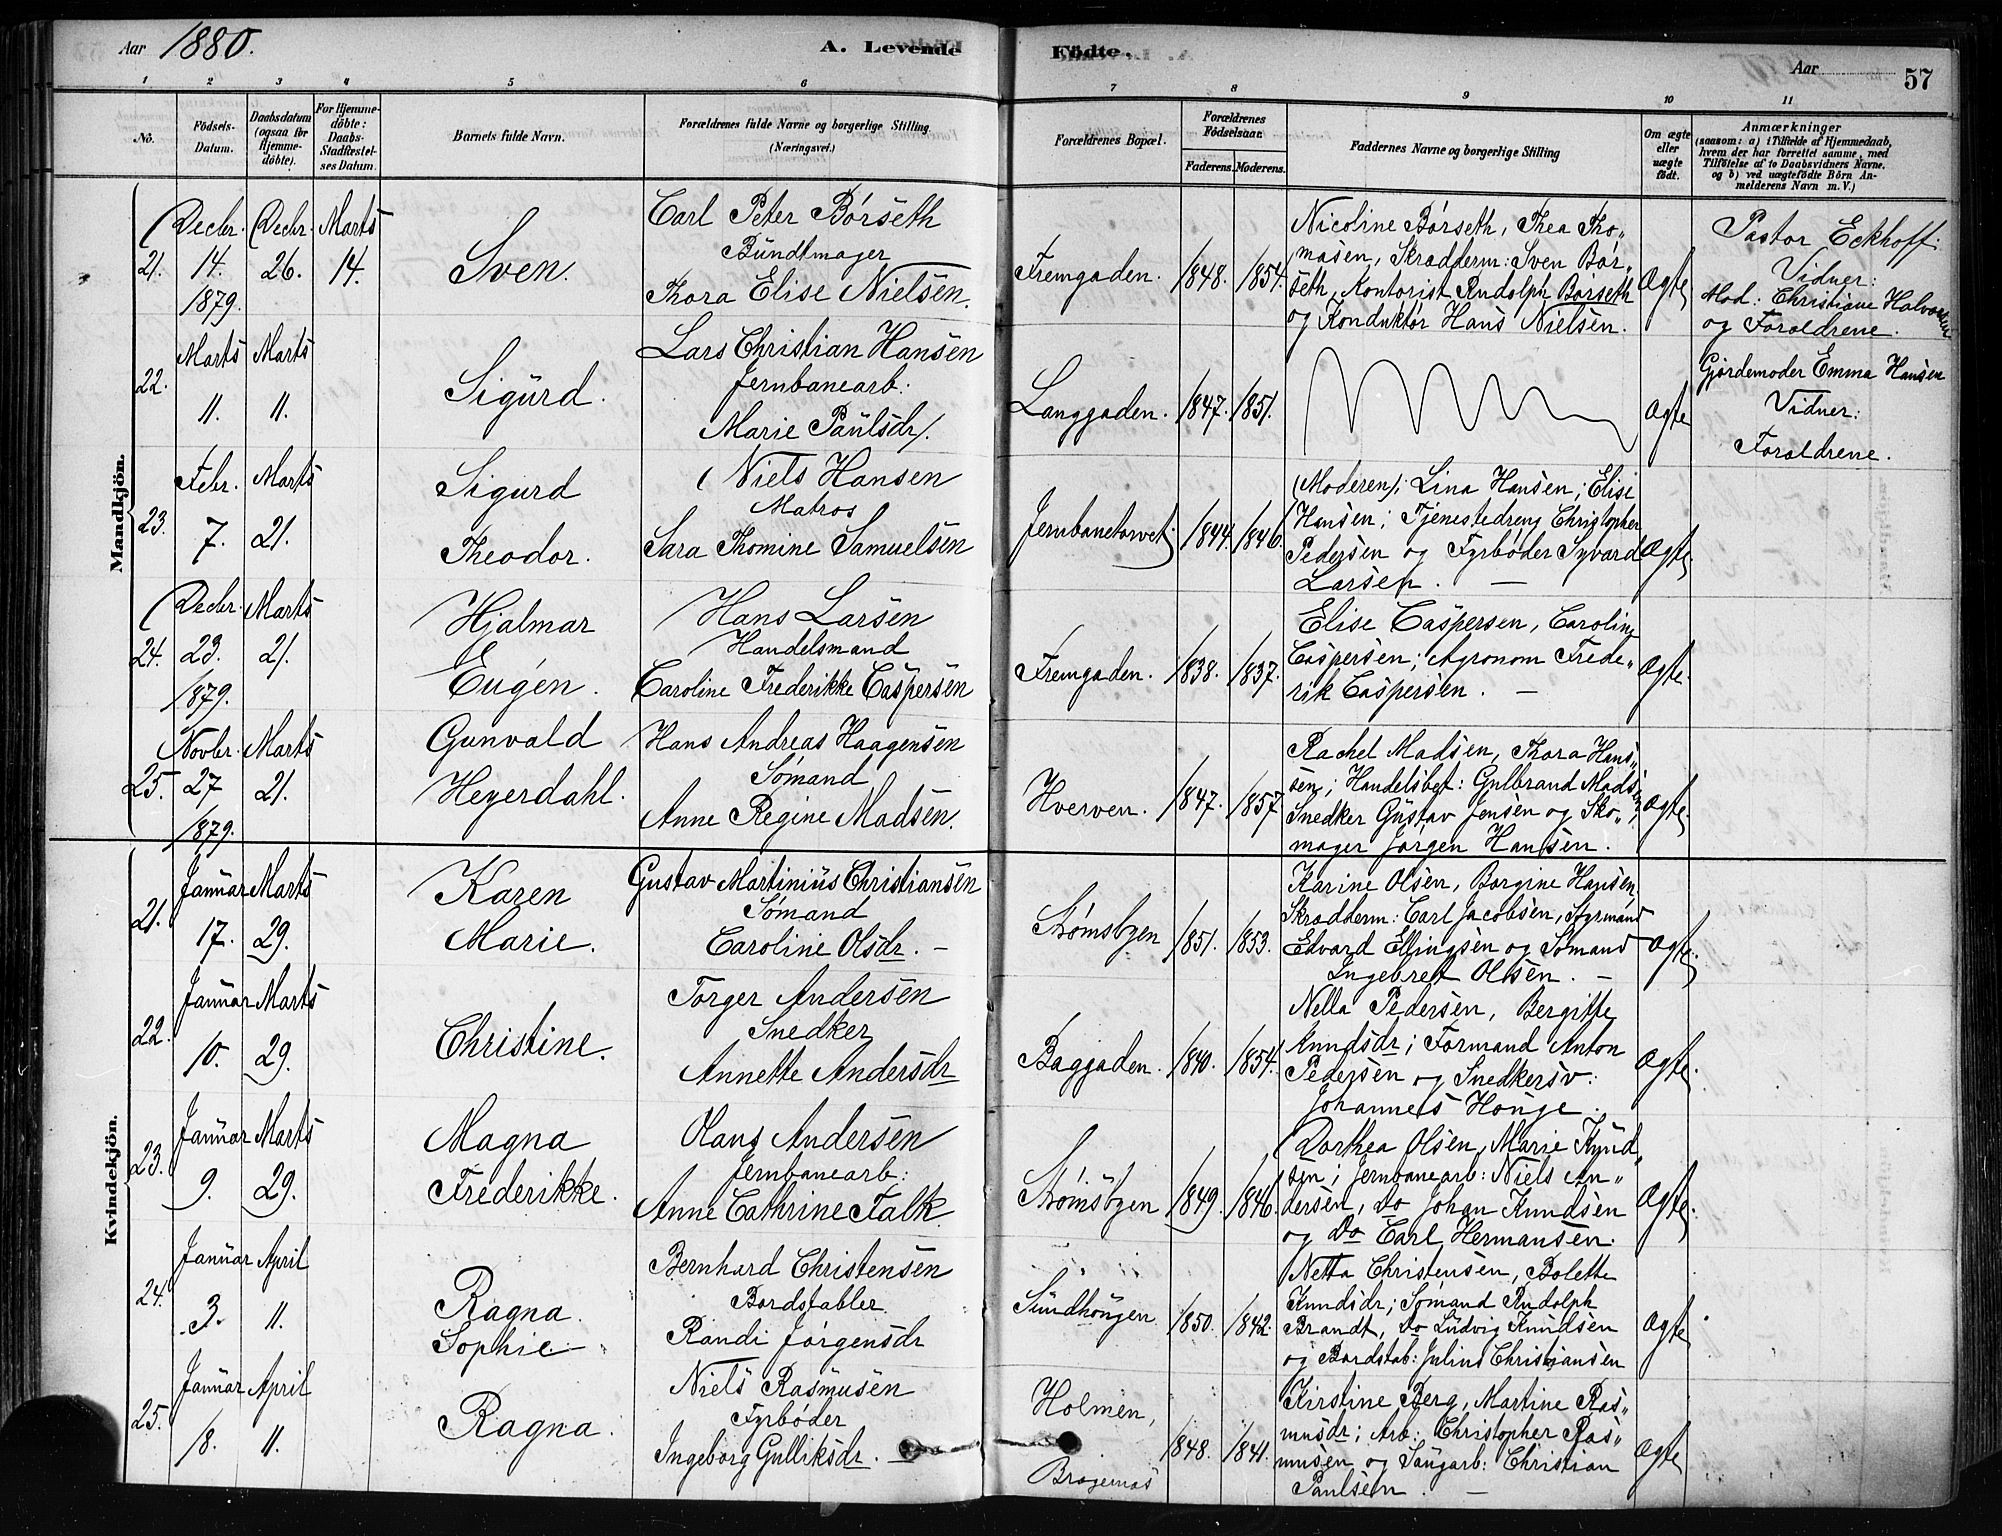 Aar 1880. A. Levende Födte. Aar 57
1 2 3 4 5 6 7 8 9 10 11
No. Födsels-Datum. Daabsdatum (ogsaa for Hjemme-döbte). For Hjemme-döbte: Daabs-Stadfæstel-ses Datum. Barnets fulde Navn. Forældrenes fulde Navne og borgerlige Stilling (Næringsvei.) Forældrenes Bopæl. Forældrenes Födselsaar. Faderens. Moderens. Faddernes Navne og borgerlige Stilling Om ægte eller uægte födt. Anmærkninger (saasom: a) i Tilfælde af Hjemmedaab, hvem der har forrettet samme, med Tilföielse af to Daabsvidners Navne. og b) ved uægtefödte Börn An-melderens Navn m. V.)
Mandkjön.
21. Decbr. 14. 1879. Decbr. 26. Marts 14. Sven.
Carl Peter Börseth
Bundtmager
Thora Elise Nielsen.
Fremgaden. 1848. 1854.
Nicoline Börseth, Thea Tho„
masen, Skrædderm: Sven Bör„
seth, Kontorist Rudolph Börseth
og Konduktör Hans Nielsen.
Ægte
Pastor Eckhoff.
Vidner:
Mad: Christiane Halvorsen
og Forældrene.
22. Marts 11. Marts 11. Sigurd.
Lars Christian Hansen
Jernbanearb:
Marie Paulsdr.
Langgaden. 1847. 1851. Ægte
Gjordemoder Emma Hansen
Vidner:
Forældrene.
23. Febr. 7. Marts 21. Sigurd
Theodor.
Niels Hansen
Matros
Sara Thomine Samuelsen
Jernbanetorvet. 1844. 1846.
(Moderen); Lina Hansen; Elise
Hansen; Tjenestedreng Christopher
Pedersen og Fyrböder Syvard
Larsen. —
Ægte.
24. Decbr. 23. 1879. Marts 21. Hjalmar
Eugén.
Hans Larsen
Handelsmand
Caroline Frederikke Caspersen
Fremgaden. 1838. 1837.
Elise Caspersen, Caroline
Caspersen; Agronom Frede„
rik Caspersen. —
Ægte.
25. Novbr. 27 1879. Marts 21. Gunvald
Heyerdahl.
Hans Andreas Haagensen
Sömand
Anne Regine Madsen.
Hverven. 1847. 1857
Rachel Madsen, Thora Hans„
sen; Handelsbet: Gulbrand Madsen,
Snedker Gustav Jensen og Sko„
mager Jörgen Hansen.
Ægte.
Kvindekjön.
21. Januar 17. Marts 29. Karen
Marie.
Gustav Martinius Christiansen
Sömand
Caroline Olsdr. —
Strömsbyen 1851. 1853.
Karine Olsen, Borgine Hansen,
Skrædderm: Carl Jacobsen, Styrmand
Edvard Ellingsen og Sömand
Ingebret Olsen. —
Ægte.
22. Januar 10. Marts 29. Christine.
Torger Andersen
Snedker
Annette Andersdr
Baggaden. 1840. 1854.
Nella Pedersen, Bergitte
Knudsdr; Formand Anton
Pedersen og Snedkersv:
Johannes Houge.
Ægte.
23. Januar 9. Marts 29. Magna
Frederikke.
Olaus Andersen
Jernbanearb:
Anne Cathrine Falk
Strömsbyen 1849. 1846.
Dorthea Olsen, Marie Knud„
sen; Jernbanearb: Niels An„
dersen, Do Johan Knudsen
og Do Carl Hermansen.
Ægte.
24. Januar 3. April 11. Ragna
Sophie.
Bernhard Christensen
Bordstabler
Randi Jörgensdr
Sundhougen 1850. 1842.
Netta Christensen, Bolette
Knudsdr; Sömand Rudolph
Brandt, Do Ludvig Knudsen
og Bordstab: Julius Christiansen
Ægte
25. Januar 18. April 11. Ragna.
Niels Rasmusen
Fyrböder
Ingeborg Gulliksdr. —
Holmen,
Bragernæs
1848. 1841.
Kirstine Berg, Martine Ras„
musdr; Arb: Christopher Ras„
musen og Saugarb: Christian
Paulsen. —
Ægte